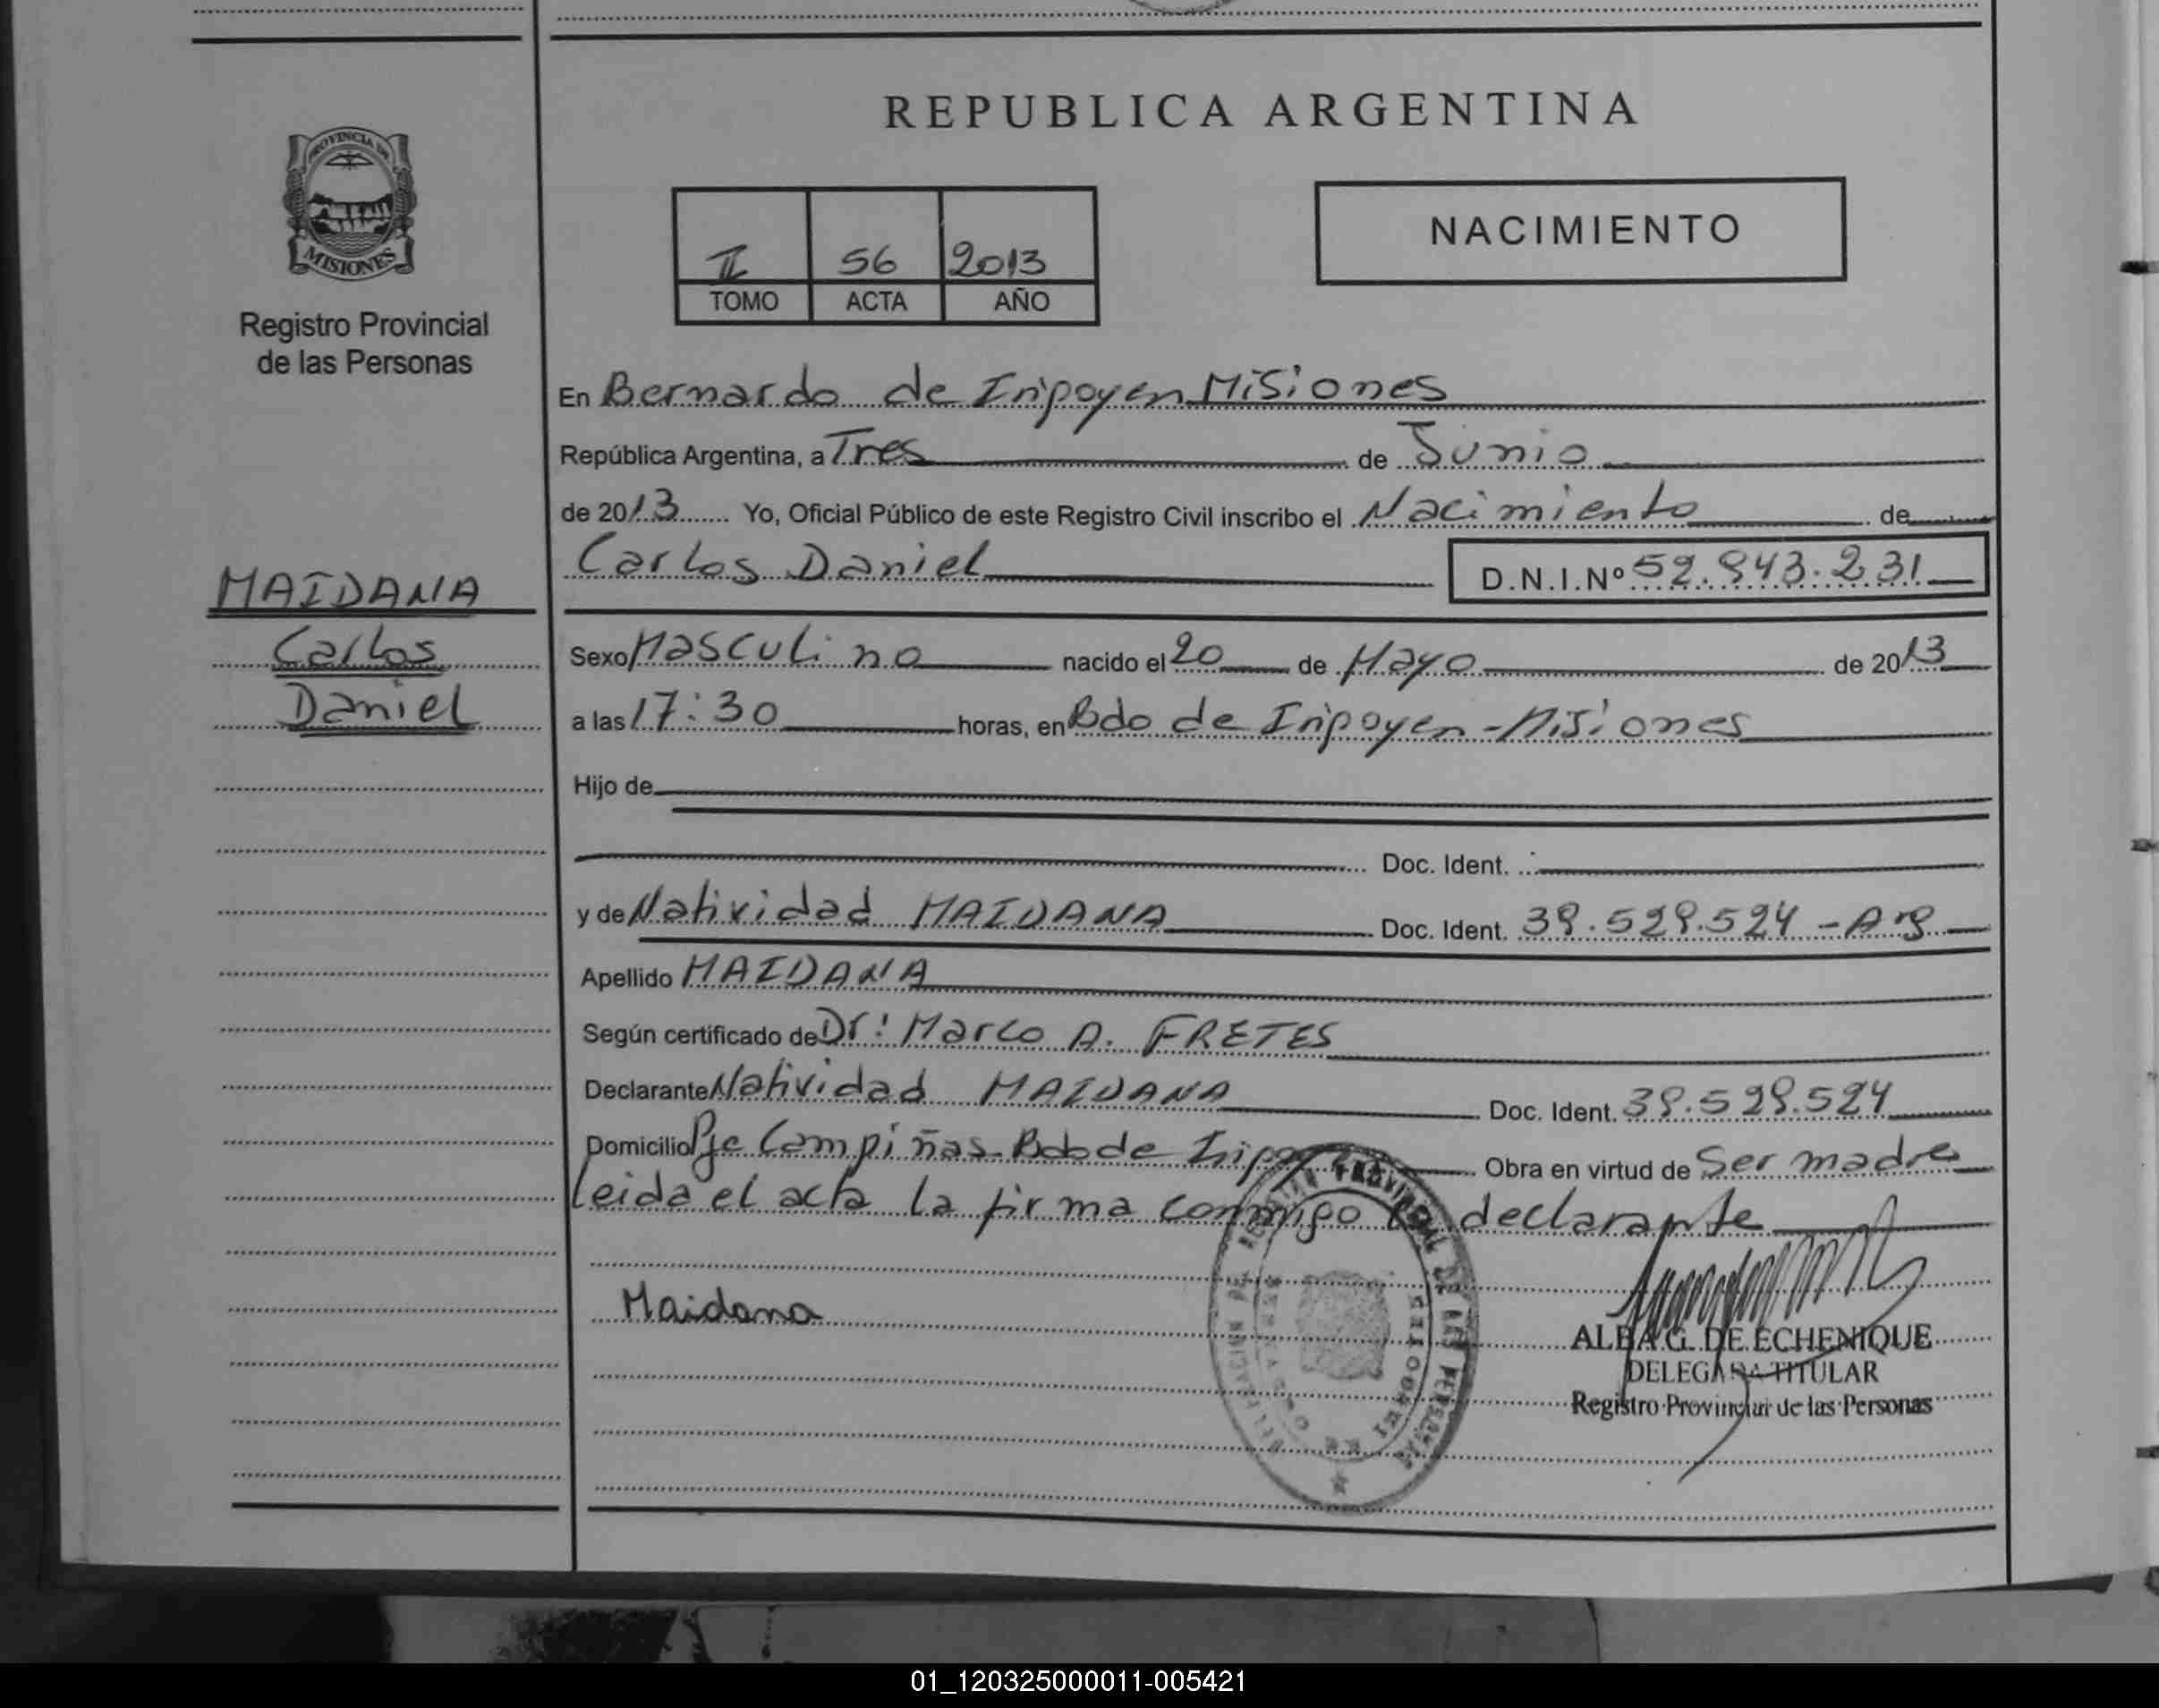 REPUBLICA ARGENTINA
PROVINCIA DE
MISIONES
Registro Provincial
de las Personas
II 56 2013
TOMO ACTA AÑO
NACIMIENTO
En Bernardo de Iripoyen Misiones
República Argentina, a Tres de Junio
de 2013 Yo, Oficial Público de este Registro Civil inscribo el Nacimiento de
Carlos Daniel D.N.I.Nº
MAIDANA
Carlos
Daniel
Sexo Masculino nacido el 20 de Mayo de 2013
a las 17:30 horas, en Bdo de Iripoyen - Misiones
Hijo de
Doc. Ident.
y de Natividad MAIDANA Doc. Ident. - Arg
Apellido MAIDANA
Según certificado de Dr: Marco A. FRETES
Declarante Natividad MAIDANA Doc. Ident.
Domicilio Pje Campiñas - Bdo de Obra en virtud de Ser madre
leida el acta la firma conmigo la declarante
Maidana
ALBA G. DE ECHENIQUE
DELEGADA TITULAR
Registro Provincial de las Personas
01_120325000011-005421